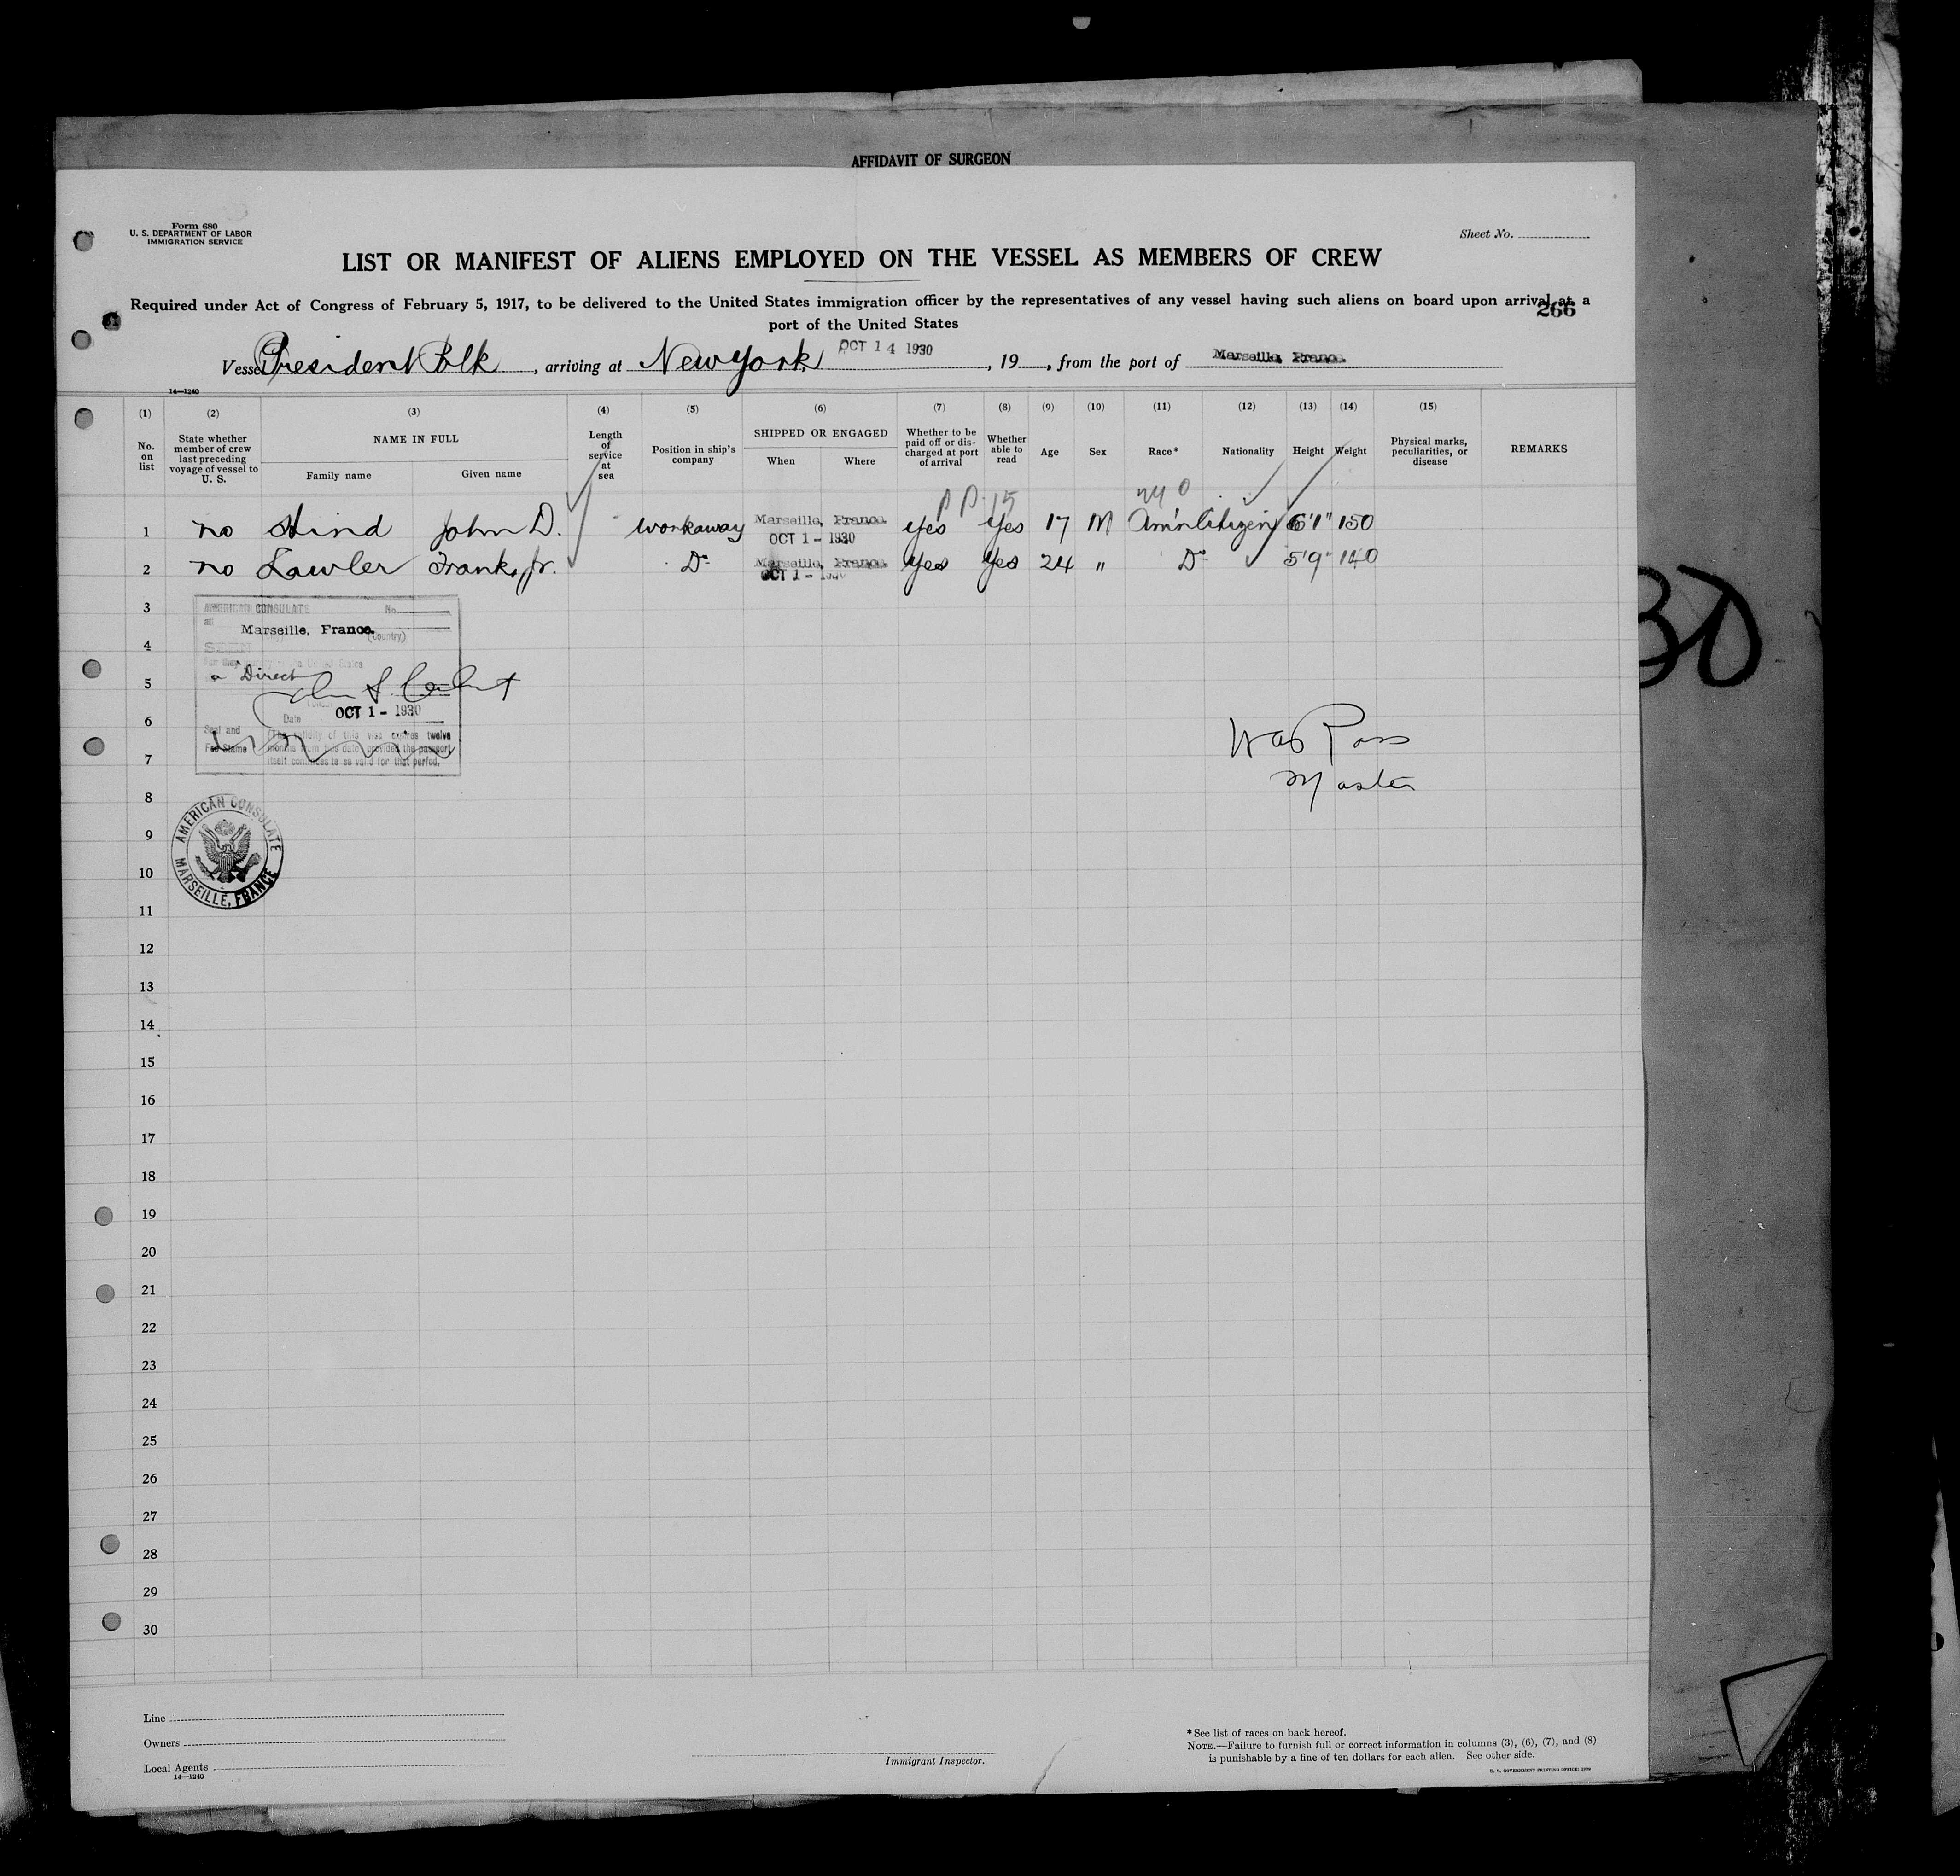 AFFIDAVIT OF SURGEON
Form 680
U. S. DEPARTMENT OF LABOR
IMMIGRATION SERVICE
Sheet No.
LIST OR MANIFEST OF ALIENS EMPLOYED ON THE VESSEL AS MEMBERS OF CREW
Required under Act of Congress of February 5, 1917, to be delivered to the United States immigration officer by the representatives of any vessel having such aliens on board upon arrival at a
port of the United States
266
Vessel President Polk, arriving at New York OCT 14 1930, 19, from the port of Marseille, France.
14—1240
(1) (2) (3) (4) (5) (6) (7) (8) (9) (10) (11) (12) (13) (14) (15)
No. on list
State whether member of crew last preceding voyage of vessel to U. S.
NAME IN FULL
Family name
Given name
Length of service at sea
Position in ship's company
SHIPPED OR ENGAGED
When
Where
Whether to be paid off or discharged at port of arrival
Whether able to read
Age
Sex
Race*
Nationality
Height
Weight
Physical marks, peculiarities, or disease
REMARKS
1 no Hind John D. workaway Marseille, France. OCT 1 - 1930 Yes Yes 17 M Am'n Citizen 6'1" 150
2 no Lawler Frank, Jr. Do Marseille, France. OCT 1 - 1930 Yes Yes 24 " Do 5'9" 140
3
4
5
6
7
8
9
10
11
12
13
14
15
16
17
18
19
20
21
22
23
24
25
26
27
28
29
30
AMERICAN CONSULATE No.
at
Marseille, France.
(Country)
SEEN
Direct
Date OCT 1 - 1930
Seal and
Fee Stamp
(The validity of this visa expires twelve
months from this date provided the passport
itself continues to be valid for that period.
AMERICAN CONSULATE
MARSEILLE, FRANCE
Ross
Master
30
Line
Owners
Local Agents
14—1240
Immigrant Inspector.
*See list of races on back hereof.
NOTE.—Failure to furnish full or correct information in columns (3), (6), (7), and (8)
is punishable by a fine of ten dollars for each alien. See other side.
U. S. GOVERNMENT PRINTING OFFICE